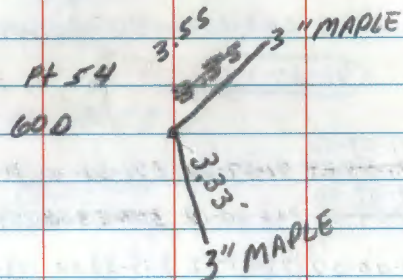 3.55
3" MAPLE
Pt 54
60D
3.33
3" MAPLE